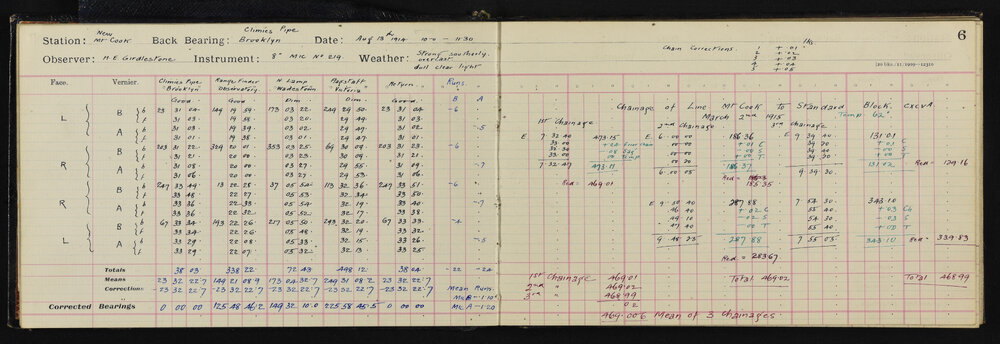 Station: New Mt Cook Back Bearing: Climies Pipe Brooklyn Date: Aug 13th 1914 10-0 - 11-30
Observer: H.E. Girdlestone Instrument: 8" Mic No 219. Weather: Strong southerly. overcast dull clear light
Face. Vernier. Climies Pipe "Brooklyn" Range Finder Observatory. N. Lamp Wadestown Flagstaff "Victoria" Return Runs.
Good Good Dim Dim Good B A
L B b 23 31 04 149 19 59 173 03 22 249 29 50 23 31 04 -6
f 31 03 19 58 03 20 29 49 31 03
A b 31 03 19 39 03 02 29 49 31 02 -5
f 31 01 19 38 03 01 29 47 31 01
R B b 203 31 22 329 20 01 353 03 25 69 30 09 203 31 23 -6
f 31 21 20 00 03 23 30 09 31 21
A b 31 08 20 00 03 27 29 55 31 09 -7
f 31 06 20 00 03 27 29 53 31 06
R B b 247 33 49 13 22 28 37 05 54 113 32 36 247 33 51 -6
f 33 48 22 27 05 53 32 34 33 50
A b 33 36 22 33 05 54 32 19 33 40 -7
f 33 36 22 32 05 52 32 17 33 38
L B b 67 33 34 193 22 26 217 05 50 293 32 20 67 33 33 -4
f 33 34 22 26 05 48 32 19 33 32
A b 33 29 22 08 05 33 32 15 33 26 -5
f 33 29 22 07 05 32 32 13 33 25
Totals 38 03 338 22 72 43 498 12 38 04 -22 -24
Means 23 32 22.7 149 21 08.9 173 04 32.7 249 31 08.2 23 32 22.7
Corrections -23 32 22.7 -23 32 22.7 -23 32 22.7 -23 32 22.7 -23 32 22.7 Mean Runs.
Mic B -1.10"
Corrected Bearings 0 00 00 125 48 46.2 149 32 10.0 225 58 45.5 0 00 00 Mic A -1.20
6
Chain Corrections. lks
1 + .01
2 + .02
3 + .03
4 + .04
5 + .05
Chainage of Line Mt Cook to Standard Block.
March 2nd 1915 Temp 62°
1st Chainage 2nd Chainage 3rd Chainage
E 7 32 40 473.15 E 6 00 00 186 36 E 9 39 40 131.01
+ .01 C + .01 C
7 32 47 473.11 6 00 05 186 37 9 39 30 131.02 Red = 129.16
Red = 469.01 Red = 185.35
E 9 50 40 287.88 7 54 30 343.10
46 40 + .02 C 55 40 + .03 Ch
49 10 - .02 S 54 30 - .03 S
47 40 - .00 T 55 40 + .00 T
9 48 25 287.88 7 55 05 343.10 Red = 339.83
Red = 283.67
1st Chainage 469.01 Total 469.02 Total 468.99
2nd " 469.02
3rd " 468.99
.02
469.006 Mean of 3 chainages.